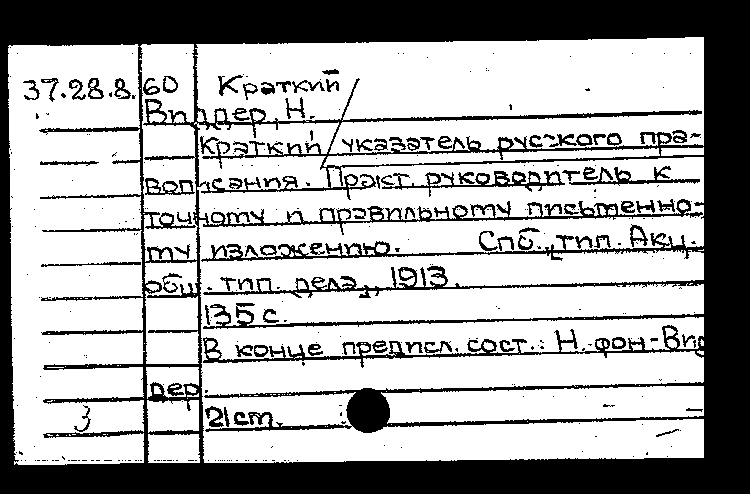 37.28.8.60 Краткий
Виддер, Н.
Краткий указатель русского пра-
вописания. Практ. руководитель к
точному и правильному письменно-
му изложению. Спб., тип. Акц.
общ. тип. дела, 1913.
135 с.
В конце предисл. сост.: Н. фон-Вид
дер.
3 21см.